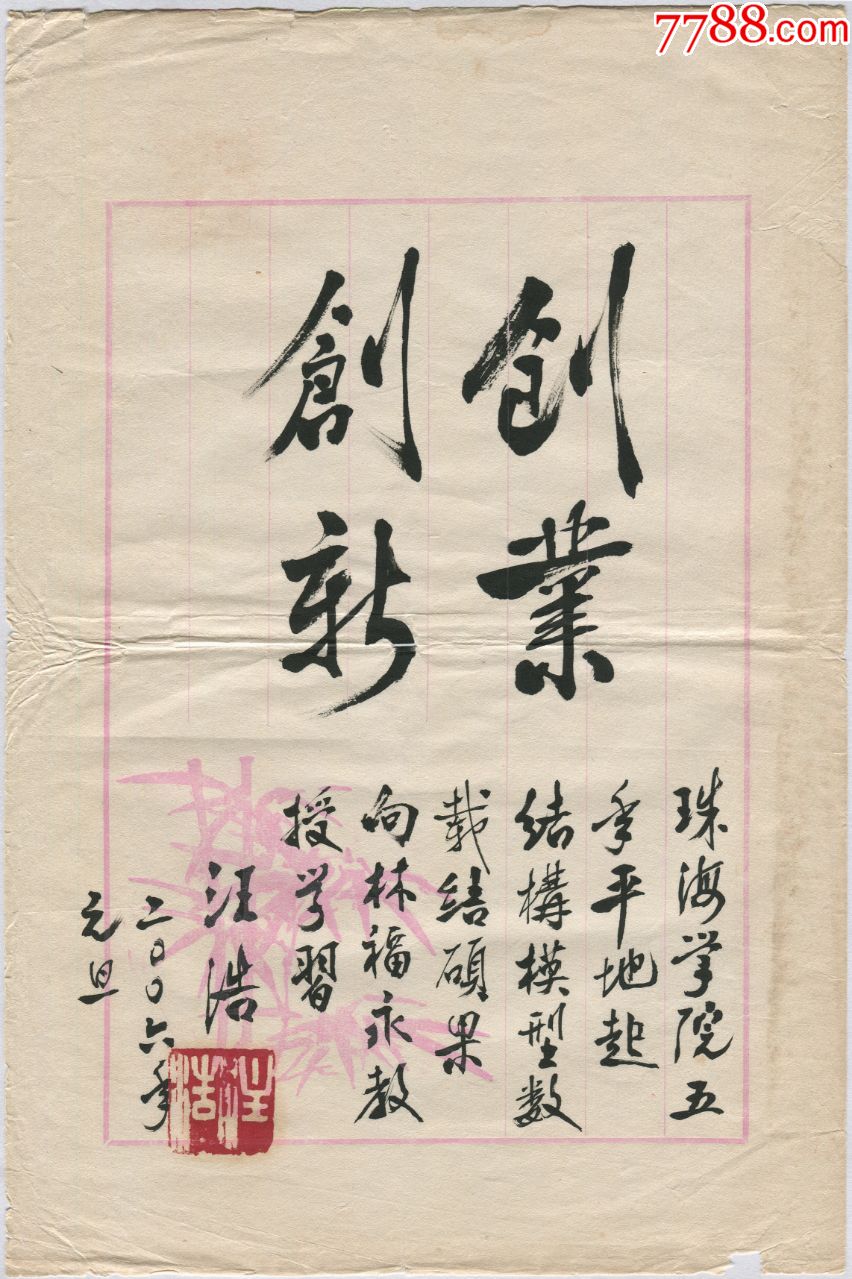 7788.com
创業
創新
珠海学院五
年平地起
结構模型数
载结硕果
向林福永教
授学習
汪浩
二〇〇六年
元旦
汪浩